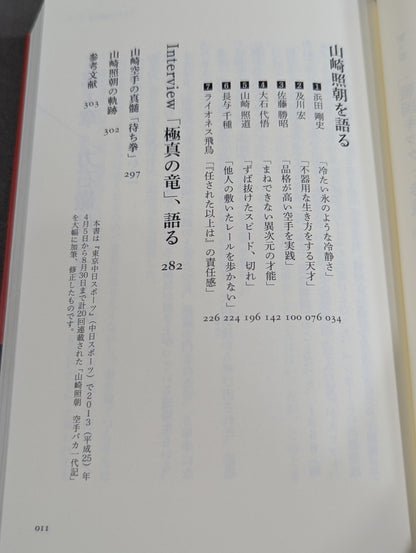 山崎照朝を語る
1 浜田剛史 「冷たい氷のような冷静さ」 034
2 及川宏 「不器用な生き方をする天才」 076
3 佐藤勝昭 「品格が高い空手を実践」 100
4 大石代悟 「まねできない異次元の才能」 142
5 山崎照道 「ずば抜けたスピード、切れ」 196
6 長与千種 「他人の敷いたレールを歩かない」 224
7 ライオネス飛鳥 「『任された以上は』の責任感」 226
Interview 「極真の竜」、語る 282
山崎空手の真髄「待ち拳」 297
山崎照朝の軌跡 302
参考文献 303
本書は、『東京中日スポーツ』(中日スポーツ)で2013(平成25)年
4月5日から8月30日まで計20回連載された「山崎照朝 空手バカ一代記」
を大幅に加筆、修正したものです。
011